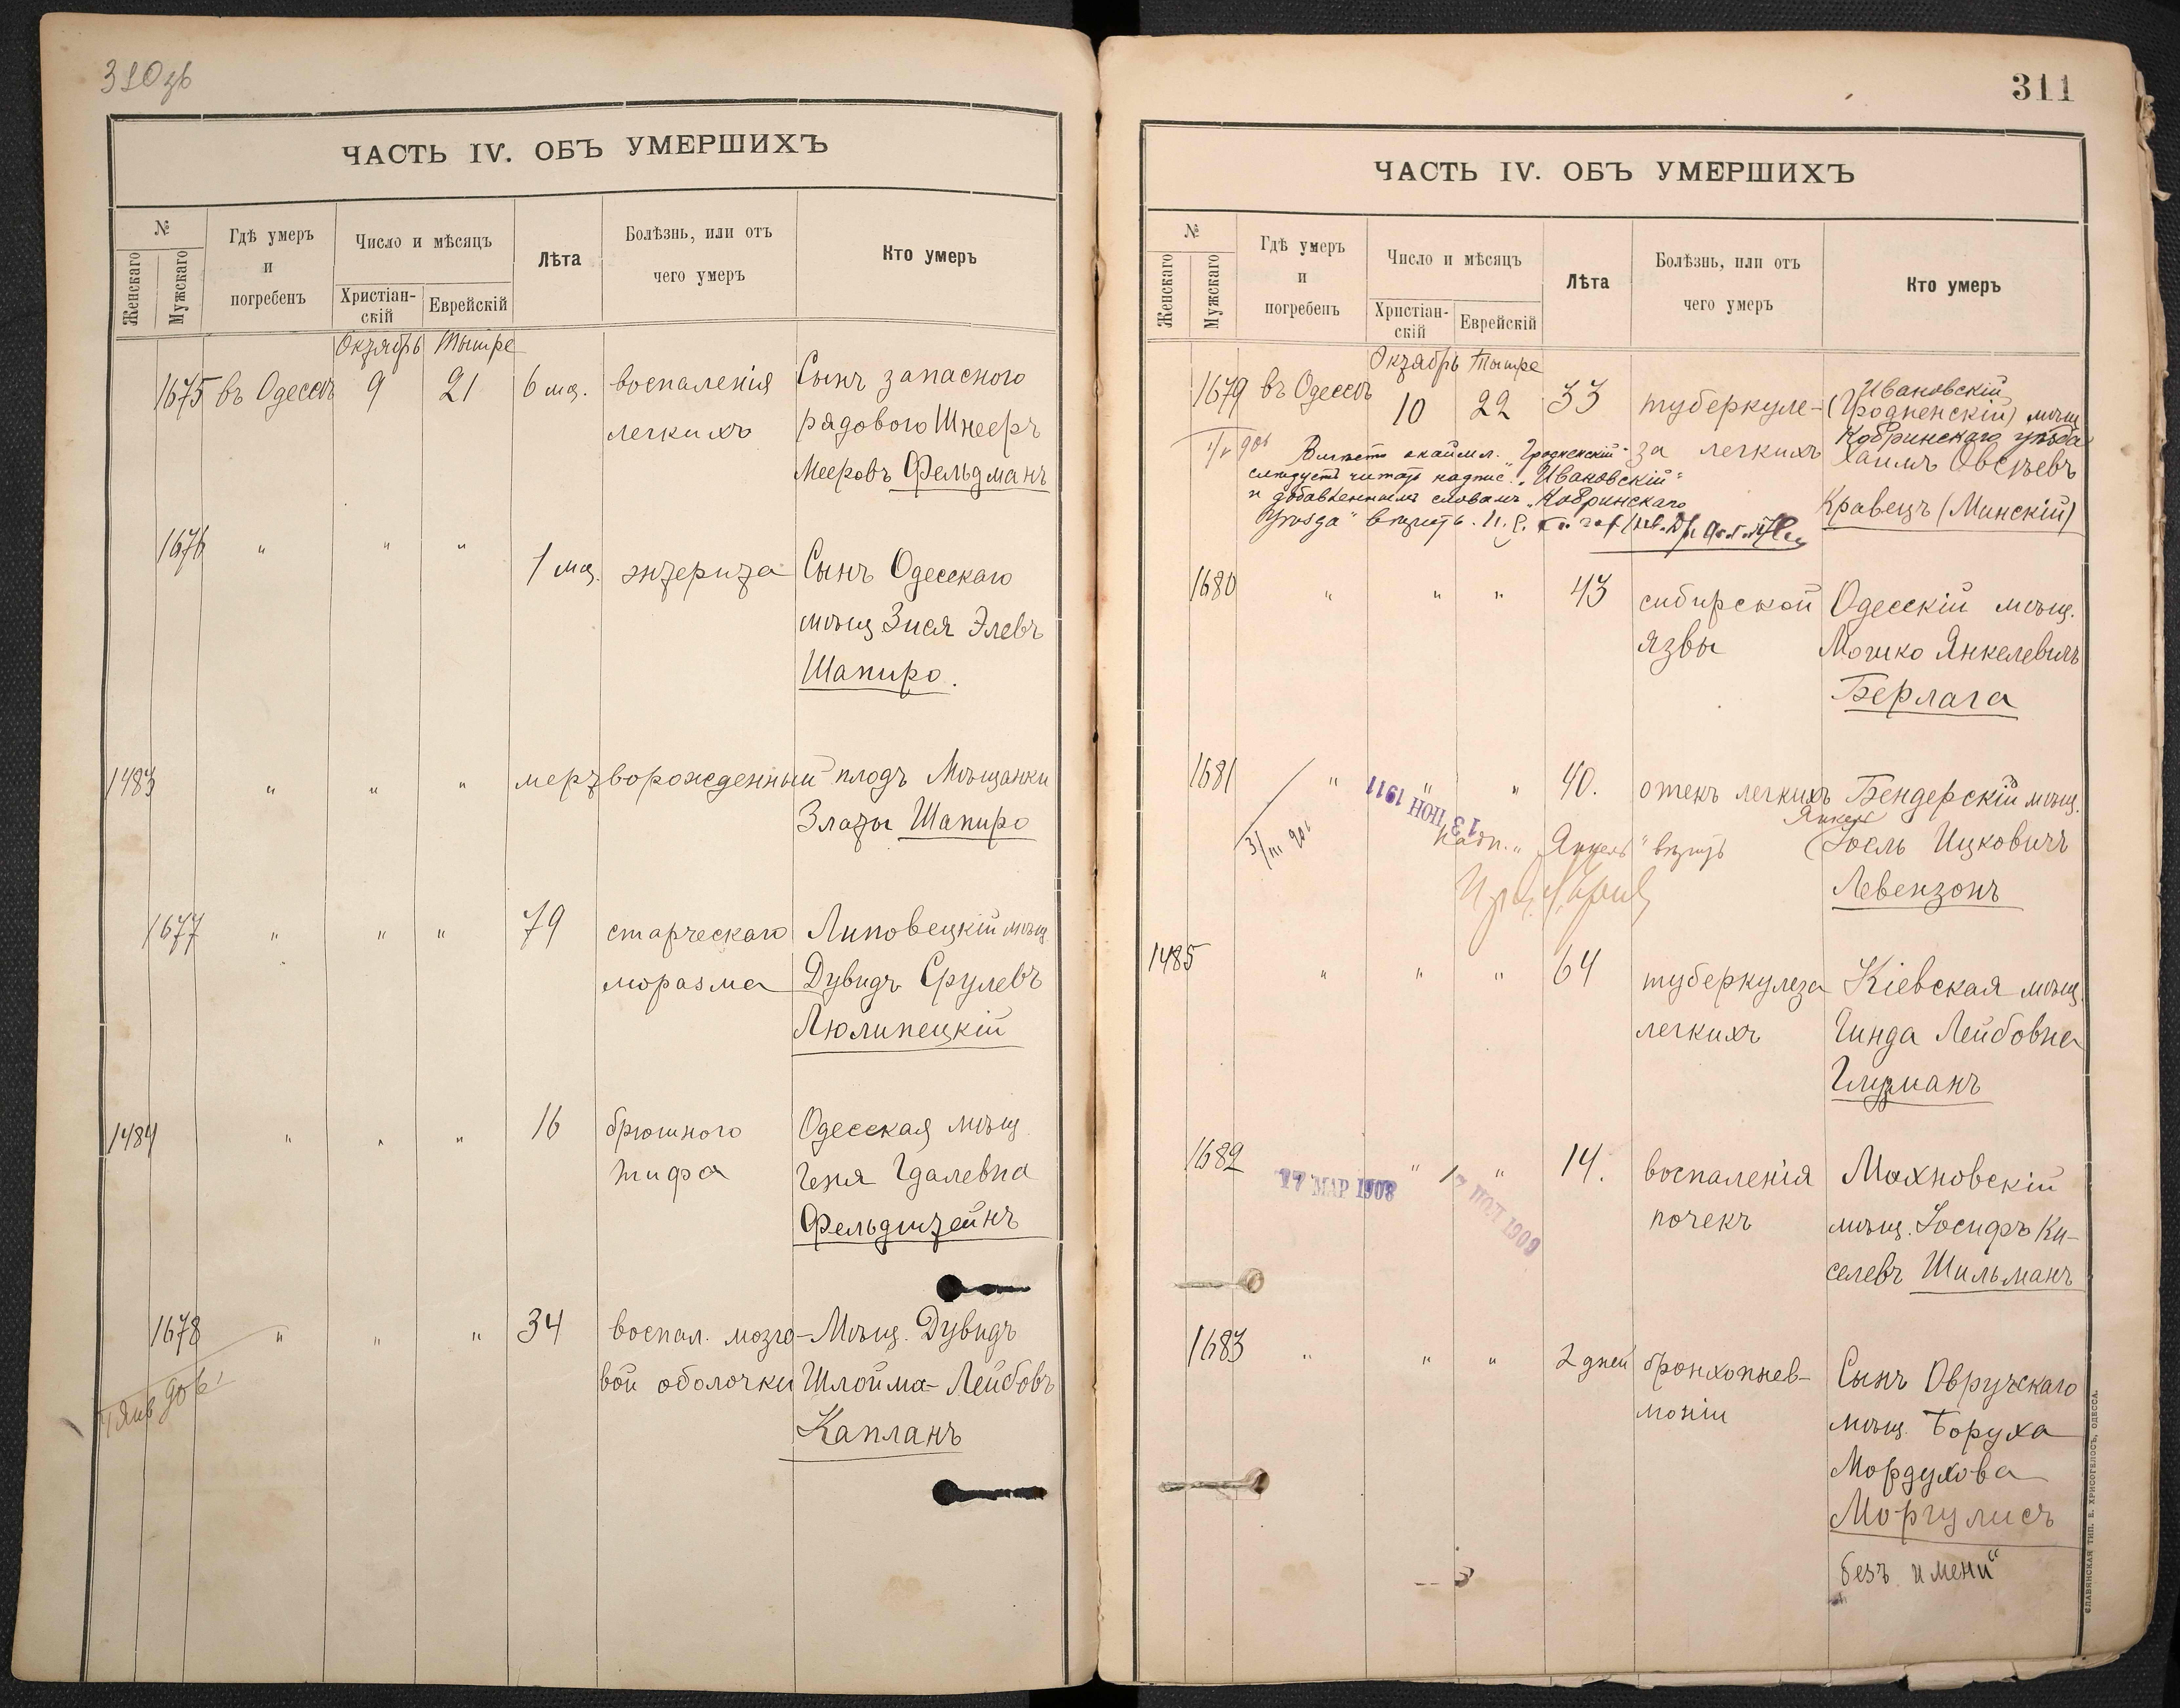 310 зв
ЧАСТЬ IV. ОБЪ УМЕРШИХЪ
№
Женскаго
Мужскаго
Гдѣ умеръ
и
погребенъ
Число и мѣсяцъ
Христіан-
скій
Еврейскій
Лѣта
Болѣзнь, или отъ
чего умеръ
Кто умеръ
Октябрь Тышре
1675 въ Одессѣ 9 21 6 мѣс. воспаленія Сынъ запаснаго
легкихъ рядового Шнееръ
Мееровъ Фельдманъ
1676 " " " 1 мѣс. энтерита Сынъ Одесскаго
мѣщ Зися Элевъ
Шапиро.
1483 " " " мертворожденный плодъ Мѣщанки
Златы Шапиро
1677 " " " 79 старческаго Липовецкій мѣщ
моразма Дувидъ Срулевъ
Люлинецкій
1484 " " " 16 брюшного Одесская мѣщ
тифа Геня Гдалевна
Фельдштейнъ
1678 " " " 34 воспал. мозго- Мѣщ. Дувидъ
вой оболочки Шлойма-Лейбовъ
Капланъ
311
ЧАСТЬ IV. ОБЪ УМЕРШИХЪ
№
Женскаго
Мужскаго
Гдѣ умеръ
и
погребенъ
Число и мѣсяцъ
Христіан-
скій
Еврейскій
Лѣта
Болѣзнь, или отъ
чего умеръ
Кто умеръ
Октябрь Тышре
Ивановскій
1679 въ Одессѣ 10 22 33 туберкуле- (Гродненскій) мѣщ
Кобринскаго уѣзда
за легкихъ Хаимъ Овсѣевъ
Кравецъ (Минскій)
Вмѣсто окаймл. "Гродненскій"
слѣдуетъ читать надпис. "Ивановскій"
и добавленнымъ словамъ "Кобринскаго
Уѣзда" вѣрить.
1680 " " " 43 сибирской Одесскій мѣщ.
язвы Мошко Янкелевичъ
Берлага
1681 " " " 40. отекъ легкихъ Бендерскій мѣщ.
13 ІЮН 1911
Янкель
надп. "Янкель" вѣрить (Іосль Ицковичъ
Левензонъ
1485 " " " 64 туберкулеза Кіевская мѣщ.
легкихъ Гинда Лейбовна
Глузманъ
1682 " " 14. воспаленія Махновскій
17 МАР 1908
1909
почекъ мѣщ. Іосифъ Ки-
селевъ Шильманъ
1683 " " " 2 дней бронхопнев- Сынъ Овручскаго
моніи мѣщ. Боруха
Мордухова
Моргулисъ
"безъ имени"
СЛАВЯНСКАЯ ТИП. Е. ХРИСОГЕЛОСЪ, ОДЕССА.